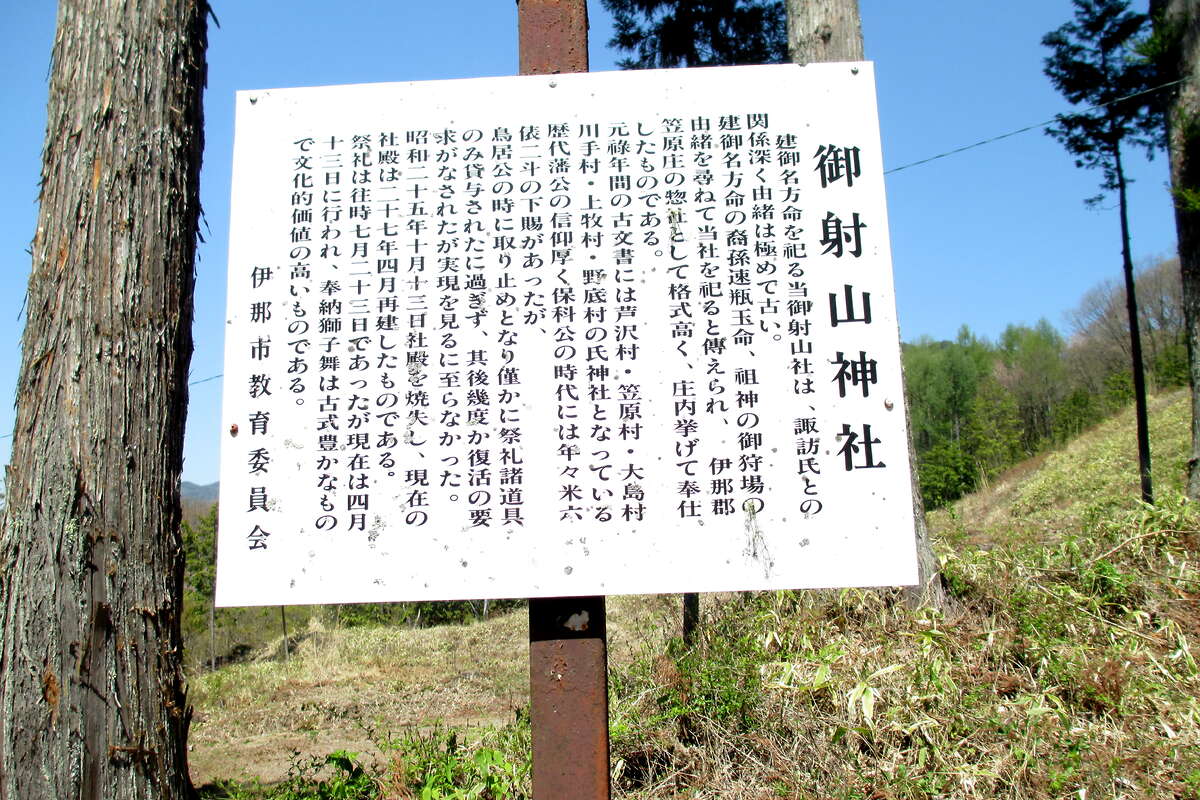 御射山神社
建御名方命を祀る当御射山社は、諏訪氏との
関係深く由緒は極めて古い。
建御名方命の裔孫速瓶玉命、祖神の御狩場の
由緒を尋ねて当社を祀ると傳えられ、伊那郡
笠原庄の惣社として格式高く、庄内挙げて奉仕
したものである。
元禄年間の古文書には芦沢村・笠原村・大島村
川手村・上牧村・野底村の氏神社となっている
歴代藩公の信仰厚く保科公の時代には年々米六
俵二斗の下賜があったが、
鳥居公の時に取り止めとなり僅かに祭礼諸道具
のみ貸与されたに過ぎず、其後幾度か復活の要
求がなされたが実現を見るに至らなかった。
昭和二十五年十月十三日社殿を焼失し、現在の
社殿は二十七年四月再建したものである。
祭礼は往時七月二十三日であったが現在は四月
十三日に行われ、奉納獅子舞は古式豊かなもの
で文化的価値の高いものである。
伊那市教育委員会